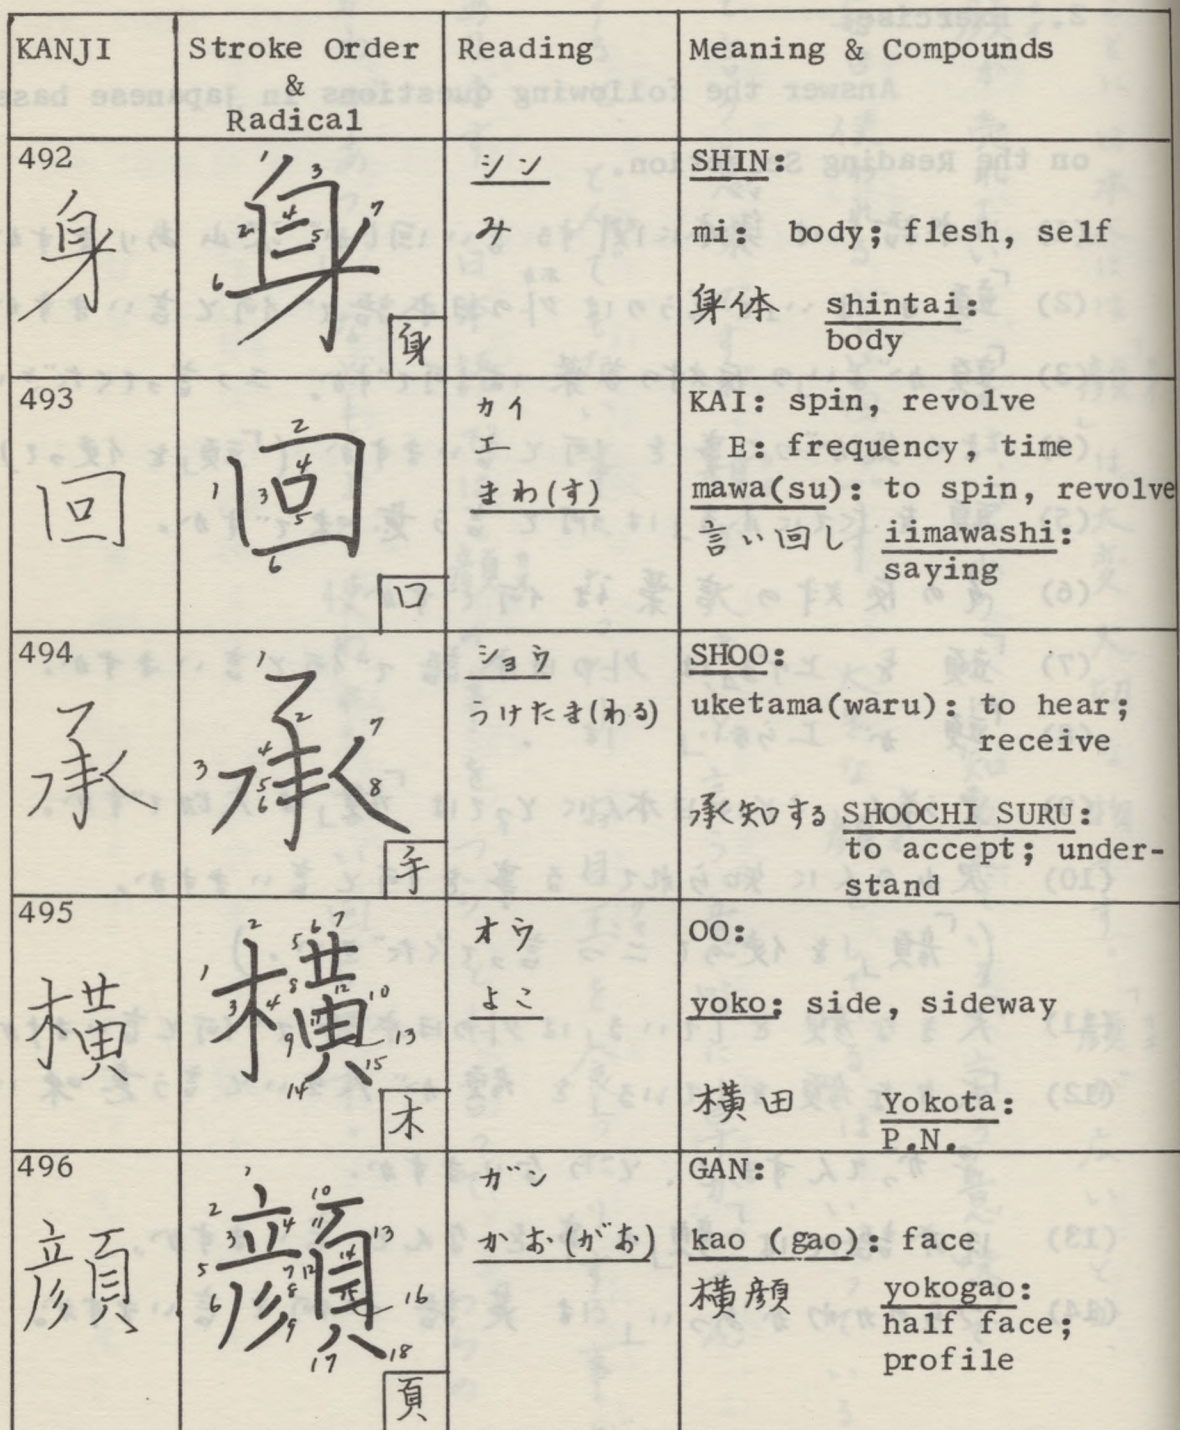 KANJI
Stroke Order
&
Radical
Reading
Meaning & Compounds
492
身
1 2 3 4 5 6 7
身
身
シン
み
SHIN:
mi: body; flesh, self
身体 shintai:
body
493
回
1 2 3 4 5 6
回
口
カイ
エ
まわ(す)
KAI: spin, revolve
E: frequency, time
mawa(su): to spin, revolve
言い回し iimawashi:
saying
494
承
1 2 3 4 5 6 7 8
承
手
ショウ
うけたま(わる)
SHOO:
uketama(waru): to hear;
receive
承知する SHOOCHI SURU:
to accept; under-
stand
495
横
1 2 3 4 5 6 7 8 9 10 11 12 13 14 15
横
木
オウ
よこ
OO:
yoko: side, sideway
横田 Yokota:
P.N.
496
顔
1 2 3 4 5 6 7 8 9 10 11 12 13 14 15 16 17 18
顔
頁
ガン
かお(がお)
GAN:
kao (gao): face
横顔 yokogao:
half face;
profile